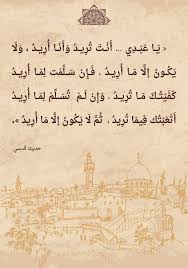 « يَا عَبْدِي ... أَنْتَ تُرِيدُ وَأَنَا أُرِيدُ ، وَلَا
يَكُونُ إِلَّا مَا أُرِيدُ ، فَإِنْ سَلَّمْتَ لِمَا أُرِيدُ
كَفَيْتُكَ مَا تُرِيدُ ، وَإِنْ لَمْ تُسَلِّمْ لِمَا أُرِيدُ
أَتْعَبْتُكَ فِيمَا تُرِيدُ ، ثُمَّ لَا يَكُونُ إِلَّا مَا أُرِيدُ »،
حديث قدسي